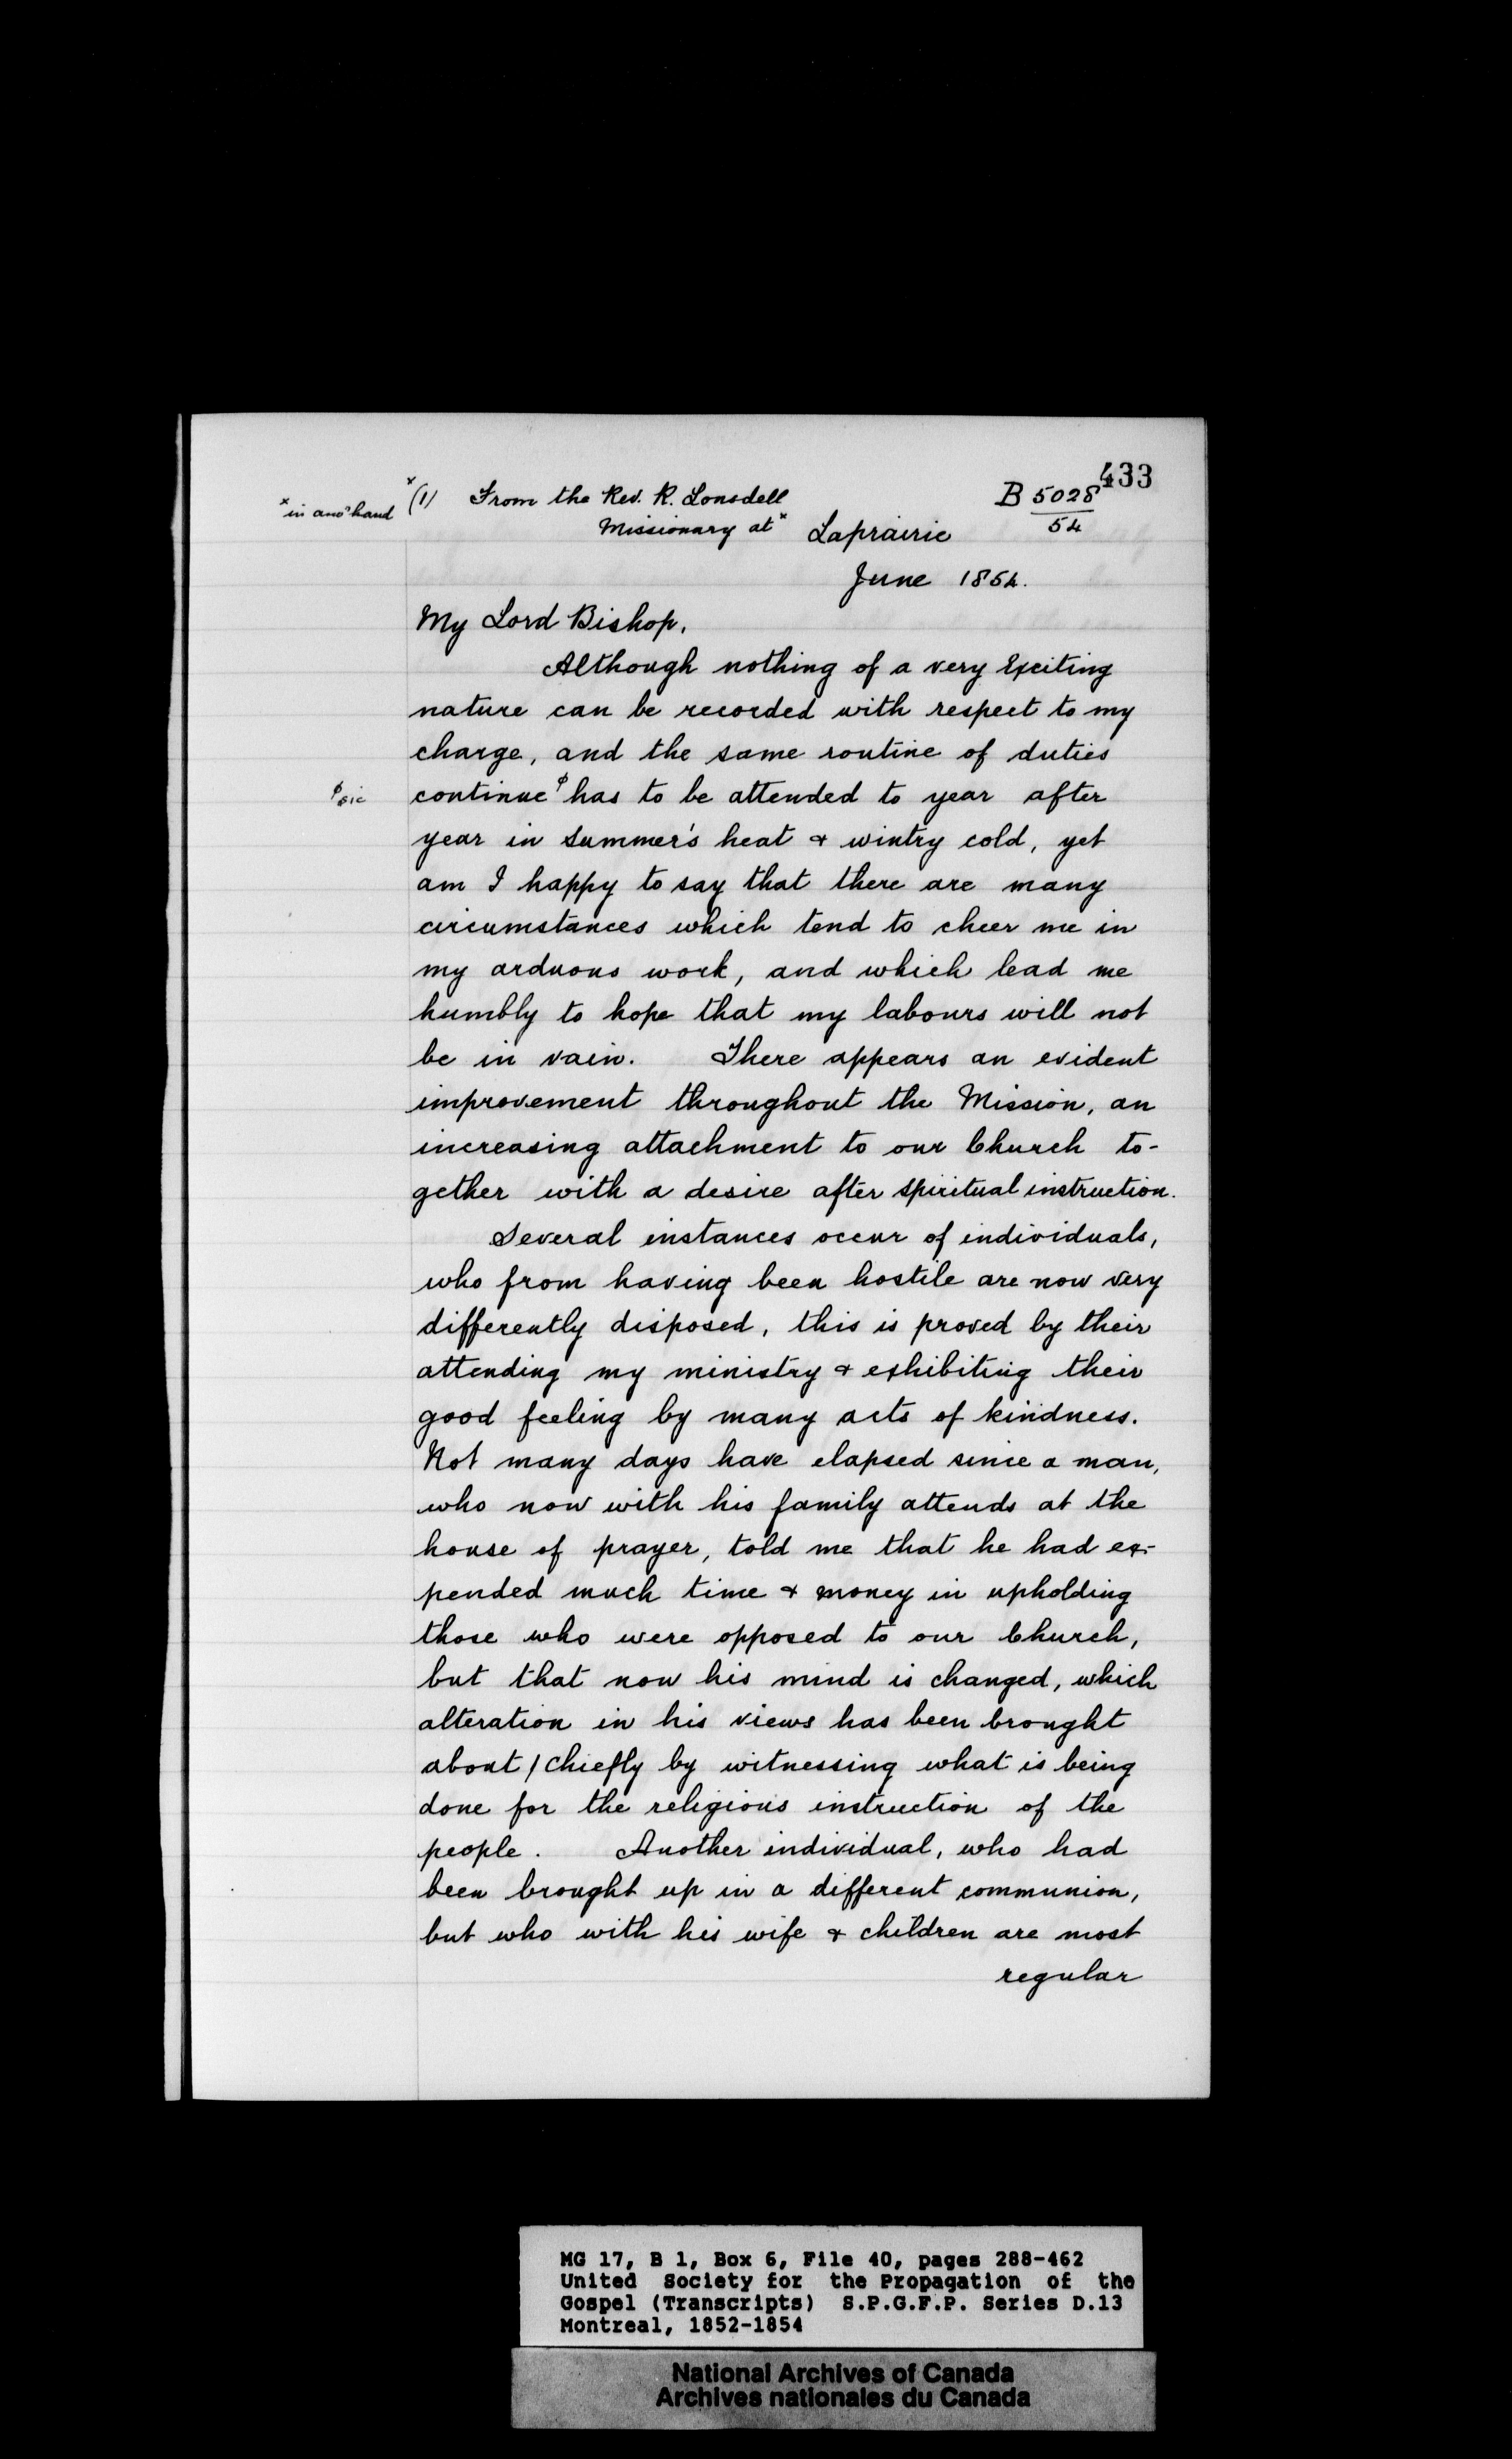 433
B 5028
54
x in ano' hand
x (1) From the Rev. R. Lonsdell
Missionary at x Laprairie
June 1854.
My Lord Bishop,
Although nothing of a very Exciting
nature can be recorded with respect to my
charge, and the same routine of duties
ϕ sic
continue ϕ has to be attended to year after
year in summer's heat & wintry cold, yet
am I happy to say that there are many
circumstances which tend to cheer me in
my arduous work, and which lead me
humbly to hope that my labours will not
be in vain. There appears an evident
improvement throughout the Mission, an
increasing attachment to our Church to-
gether with a desire after spiritual instruction.
Several instances occur of individuals,
who from having been hostile are now very
differently disposed, this is proved by their
attending my ministry & exhibiting their
good feeling by many acts of kindness.
Not many days have elapsed since a man,
who now with his family attends at the
house of prayer, told me that he had ex-
pended much time & money in upholding
those who were opposed to our Church,
but that now his mind is changed, which
alteration in his views has been brought
about / chiefly by witnessing what is being
done for the religious instruction of the
people. Another individual, who had
been brought up in a different communion,
but who with his wife & children are most
regular
MG 17, B 1, Box 6, File 40, pages 288-462
United Society for the Propagation of the
Gospel (Transcripts) S.P.G.F.P. Series D.13
Montreal, 1852-1854
National Archives of Canada
Archives nationales du Canada